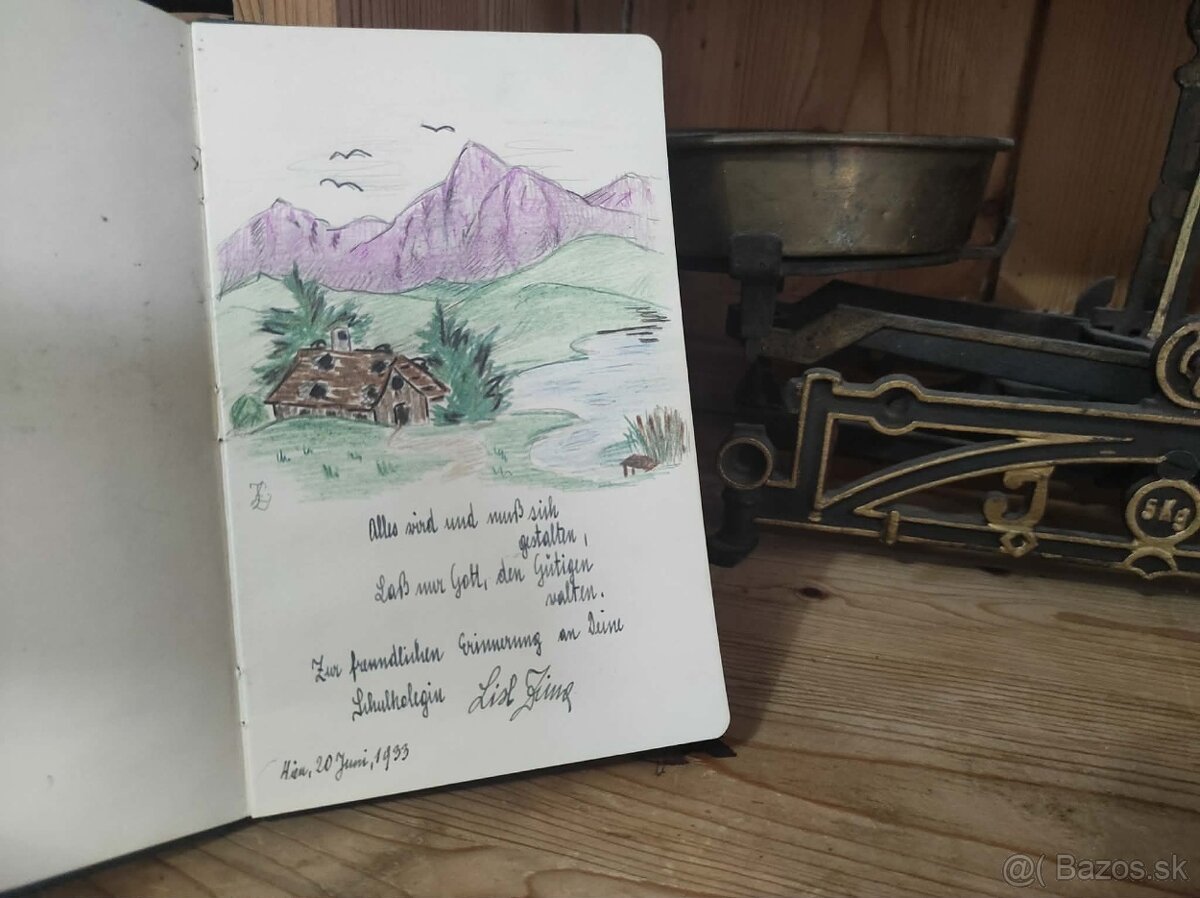 Alles wird und muß sich
gestalten,
Laß nur Gott, den Gütigen
walten.
Zur freundlichen Erinnerung an Deine
Schulkolegin Lisl
20 Juni, 1933
5Kg
@( Bazos.sk